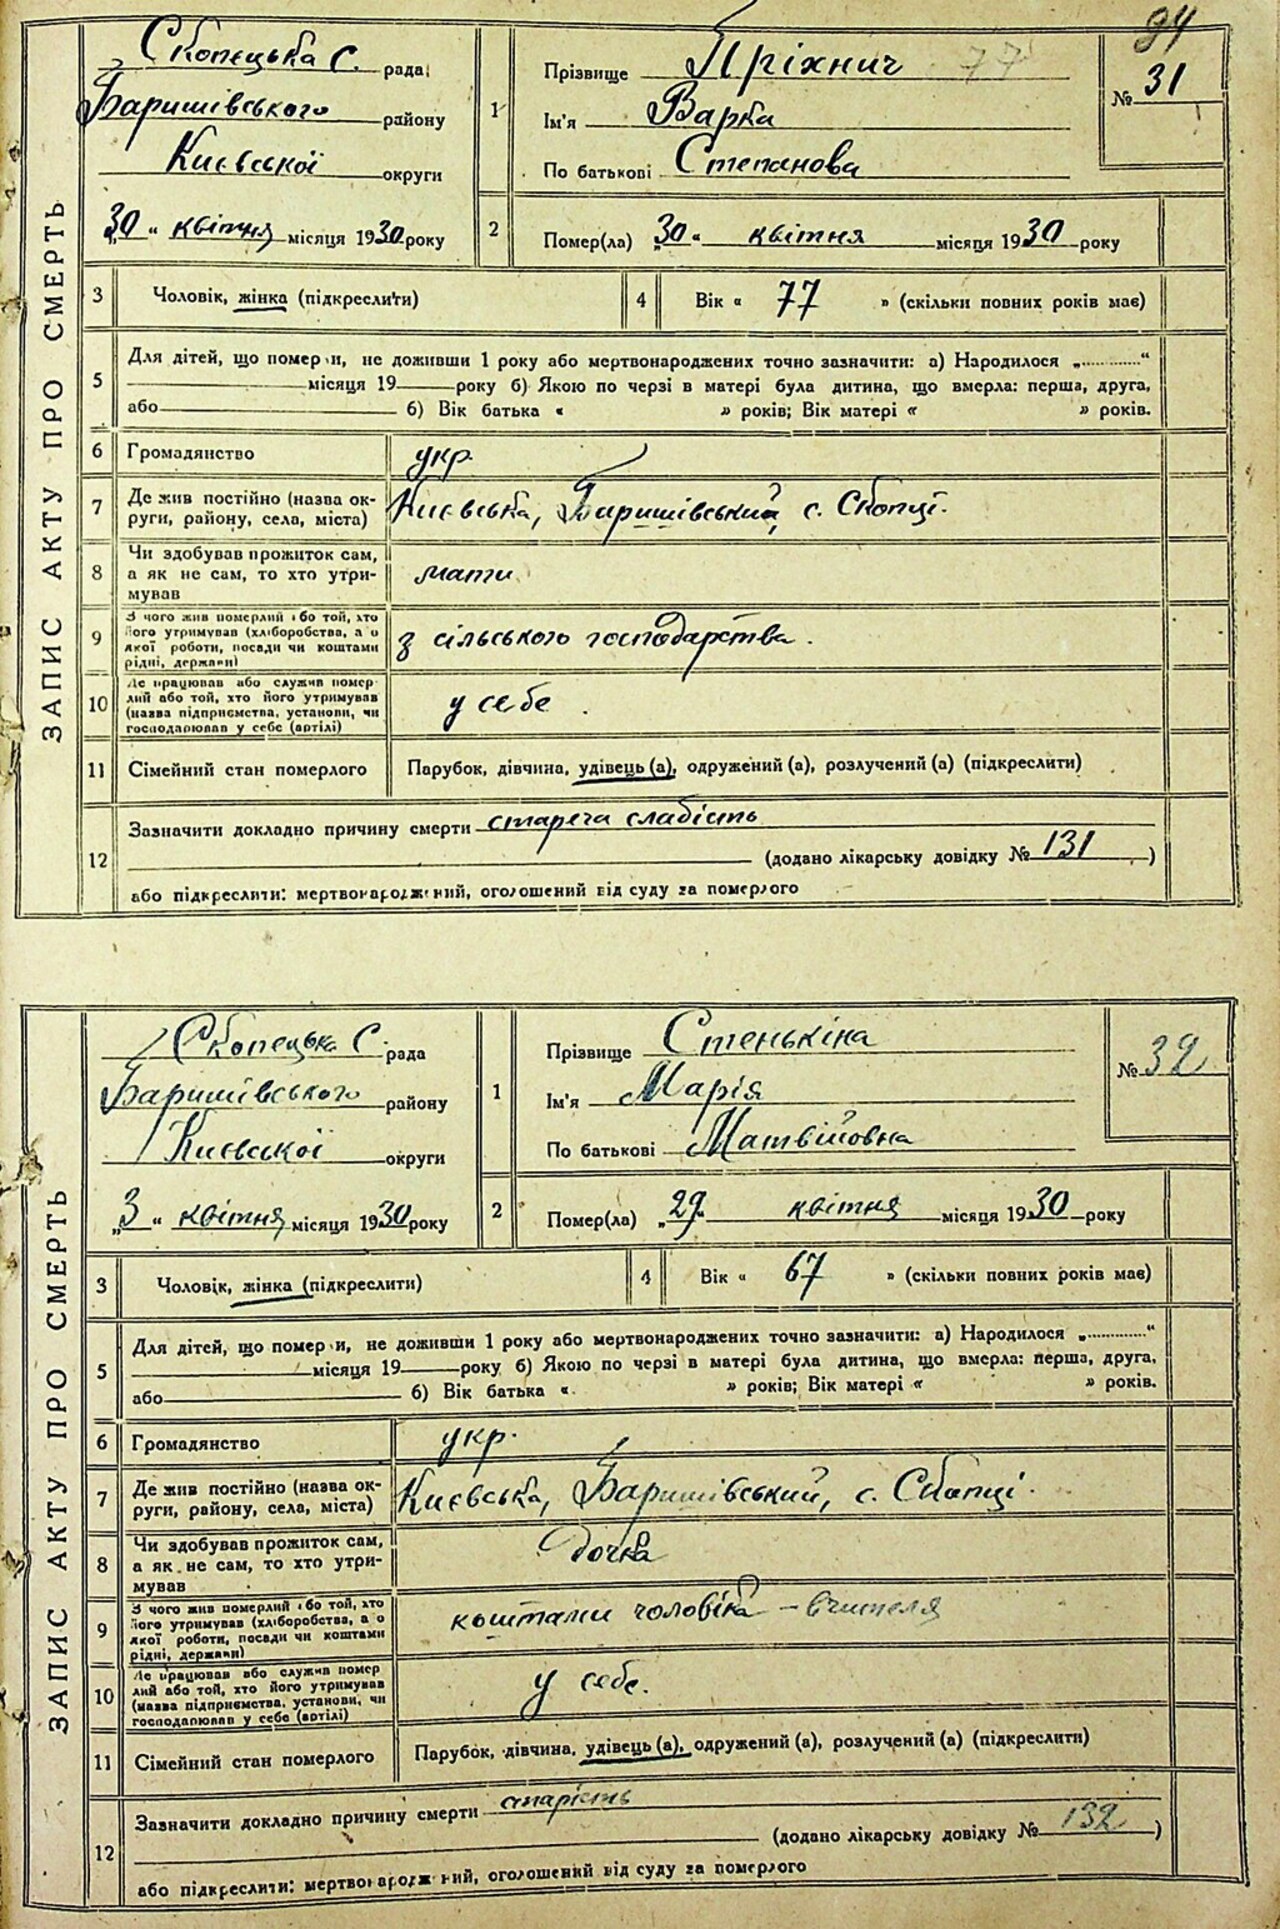 94
ЗАПИС АКТУ ПРО СМЕРТЬ
Скопецька С. рада
Баришівського району
Києвської округи
„30“ квітня місяця 1930 року
1
Прізвище Пріхнич 77
Ім'я Варка
По батькові Степанова
№ 31
2 Помер(ла) „30“ квітня місяця 1930 року
3 Чоловік, жінка (підкреслити)
4 Вік « 77 » (скільки повних років має)
5 Для дітей, що померли, не доживши 1 року або мертвонароджених точно зазначити: а) Народилося „............“
місяця 19 року б) Якою по черзі в матері була дитина, що вмерла: перша, друга,
або б) Вік батька « » років; Вік матері « » років.
6 Громадянство укр.
7 Де жив постійно (назва ок-
руги, району, села, міста) Києвська, Баришівський, с. Скопці.
8 Чи здобував прожиток сам,
а як не сам, то хто утри-
мував мати
9 З чого жив померлий або той, хто
його утримував (хліборобства, а о
якої роботи, посади чи коштами
рідні, держави) з сільського господарства.
10 Де працював або служив помер-
лий або той, хто його утримував
(назва підприємства, установи, чи
господарював у себе (артілі) у себе.
11 Сімейний стан померлого Парубок, дівчина, удівець (а), одружений (а), розлучений (а) (підкреслити)
12 Зазначити докладно причину смерти стареча слабість
(додано лікарську довідку № 131 )
або підкреслити: мертвонароджений, оголошений від суду за померлого
ЗАПИС АКТУ ПРО СМЕРТЬ
Скопецька С. рада
Баришівського району
Києвської округи
„3“ квітня місяця 1930 року
1
Прізвище Стенькіна
Ім'я Марія
По батькові Матвійовна
№ 32
2 Помер(ла) „29 квітня місяця 1930 року
3 Чоловік, жінка (підкреслити)
4 Вік « 67 » (скільки повних років має)
5 Для дітей, що померли, не доживши 1 року або мертвонароджених точно зазначити: а) Народилося „............“
місяця 19 року б) Якою по черзі в матері була дитина, що вмерла: перша, друга,
або б) Вік батька « » років; Вік матері « » років.
6 Громадянство укр.
7 Де жив постійно (назва ок-
руги, району, села, міста) Києвська, Баришівський, с. Скопці.
8 Чи здобував прожиток сам,
а як не сам, то хто утри-
мував дочка
9 З чого жив померлий або той, хто
його утримував (хліборобства, а о
якої роботи, посади чи коштами
рідні, держави) коштами чоловіка – вчителя
10 Де працював або служив помер
лий або той, хто його утримував
(назва підприємства, установи, чи
господарював у себе (артілі) у себе.
11 Сімейний стан померлого Парубок, дівчина, удівець (а), одружений (а), розлучений (а) (підкреслити)
12 Зазначити докладно причину смерти старість
(додано лікарську довідку № 132 )
або підкреслити: мертвонароджений, оголошений від суду за померлого